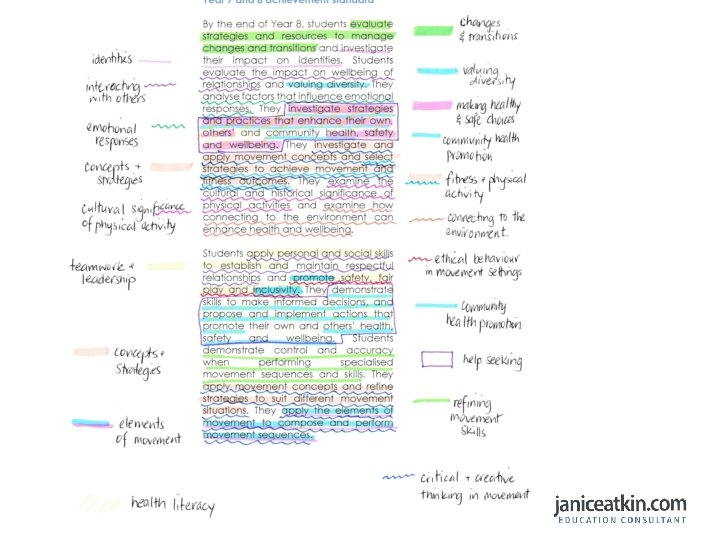 Year 7 and 8 achievement standard
By the end of Year 8, students evaluate
strategies and resources to manage
changes and transitions and investigate
their impact on identities. Students
evaluate the impact on wellbeing of
relationships and valuing diversity. They
analyse factors that influence emotional
responses. They investigate strategies
and practices that enhance their own,
others' and community health, safety
and wellbeing. They investigate and
apply movement concepts and select
strategies to achieve movement and
fitness outcomes. They examine the
cultural and historical significance of
physical activities and examine how
connecting to the environment can
enhance health and wellbeing.
Students apply personal and social skills
to establish and maintain respectful
relationships and promote safety, fair
play and inclusivity. They demonstrate
skills to make informed decisions, and
propose and implement actions that
promote their own and others' health,
safety and wellbeing. Students
demonstrate control and accuracy
when performing specialised
movement sequences and skills. They
apply movement concepts and refine
strategies to suit different movement
situations. They apply the elements of
movement to compose and perform
movement sequences.
identities
interacting
with others
emotional
responses
concepts +
strategies
cultural significance
of physical activity
teamwork +
leadership
concepts +
strategies
elements
of movement
health literacy
changes
& transitions
valuing
diversity
making healthy
& safe choices
community health
promotion
fitness + physical
activity
connecting to the
environment.
ethical behaviour
in movement settings
community
health promotion
help seeking
refining
movement
skills
critical + creative
thinking in movement
janiceatkin.com
EDUCATION CONSULTANT